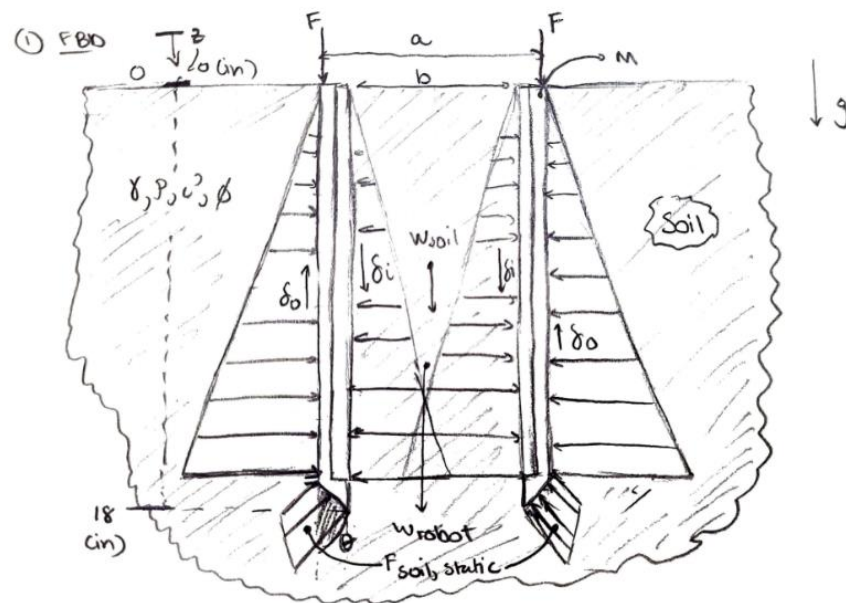 ① FBD
z
0 (in)
F
F
a
b
M
g
γ, ρ, c', φ
Soil
Wsoil
δo
δi
δi
δo
18
(in)
Wrobot
θ
Fsoil, static